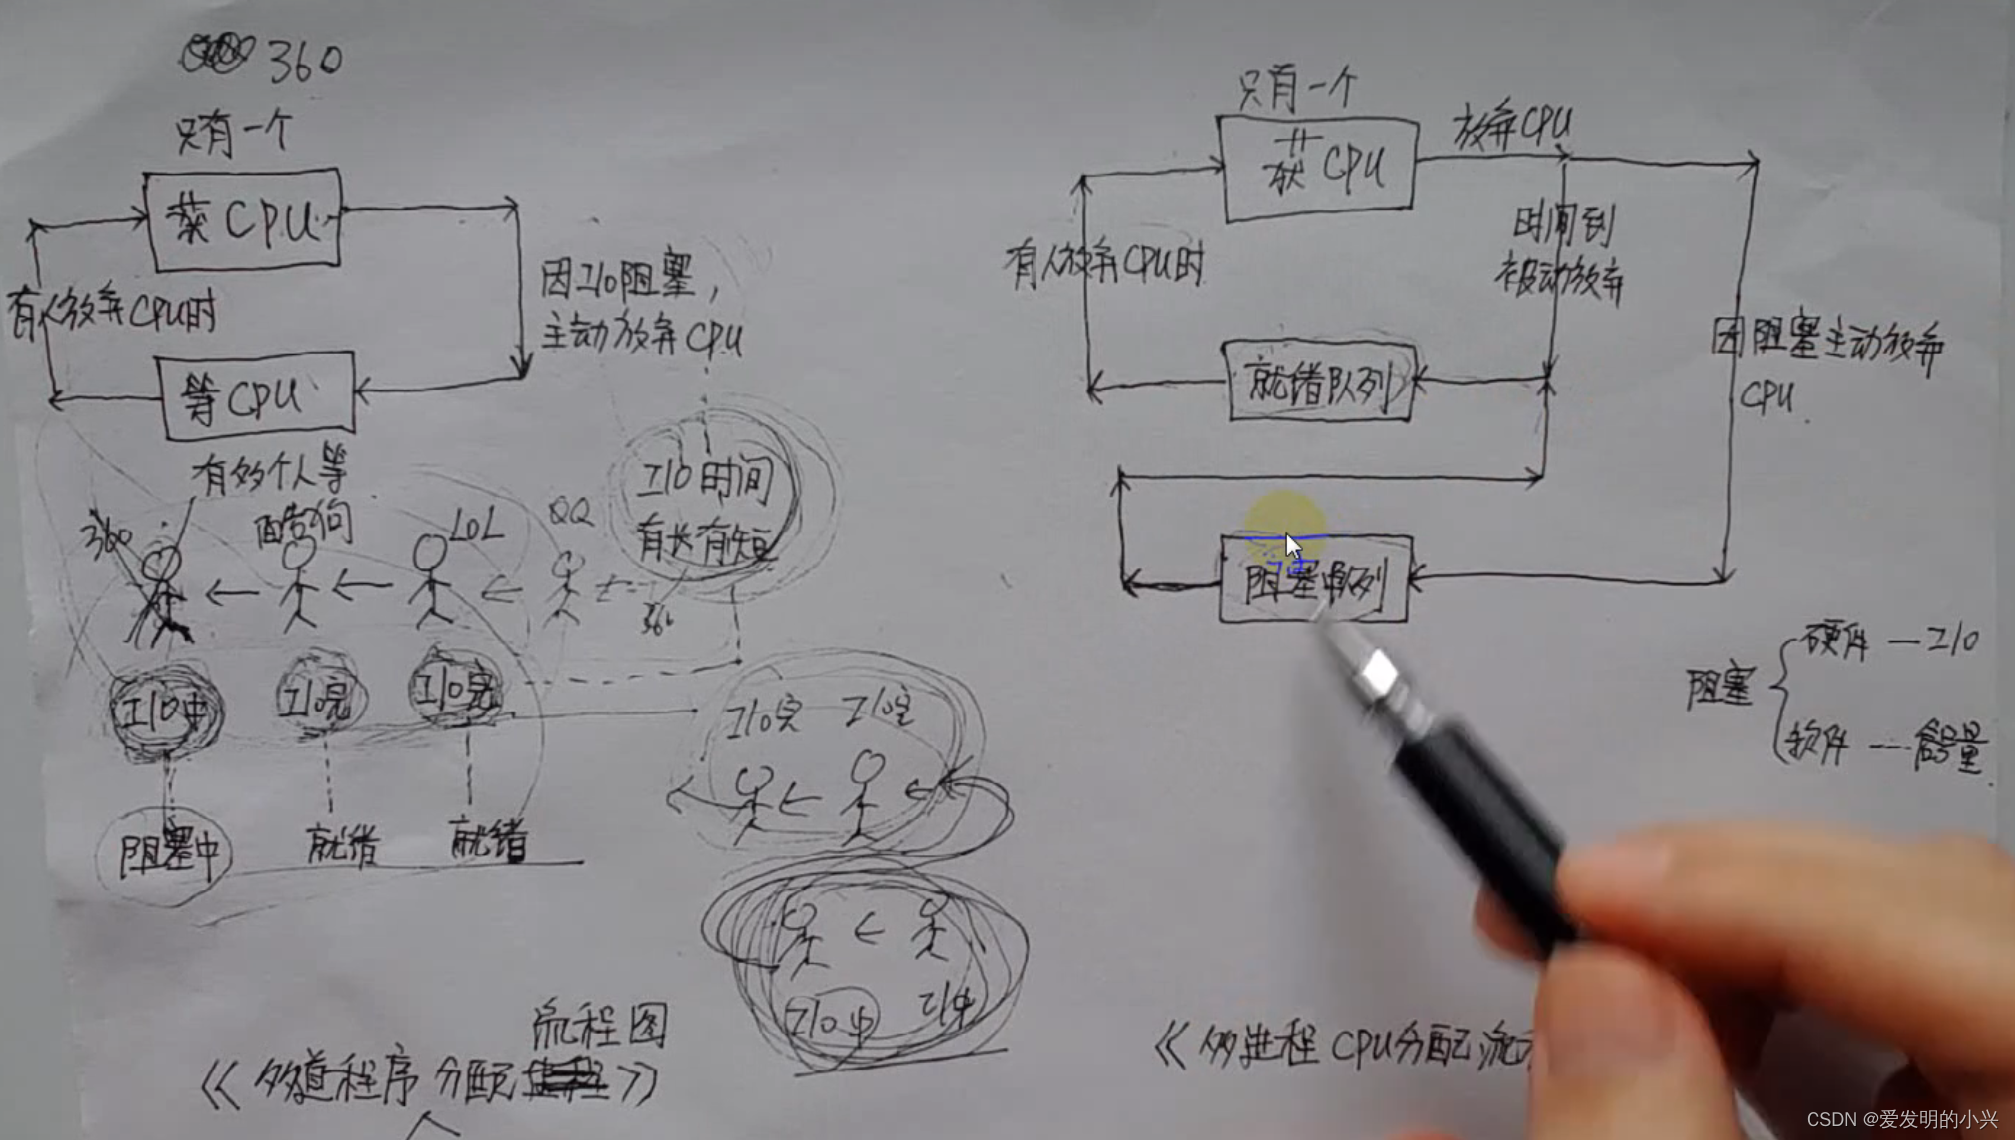 360
只有一个
获CPU
有人放弃CPU时
因I/O阻塞,
主动放弃CPU
等CPU
有多个人等
I/O时间
有长有短
360
酷狗
LOL
QQ
I/O中
I/O完
I/O完
阻塞中
就绪
就绪
I/O完
I/O完
I/O中
流程图
《多道程序分配
》
只有一个
获CPU
放弃CPU
有人放弃CPU时
时间到
被动放弃
因阻塞主动放弃
CPU.
就绪队列
阻塞队列
阻塞
硬件 — I/O
软件 — 信号量
《多进程 CPU分配流
CSDN @爱发明的小兴